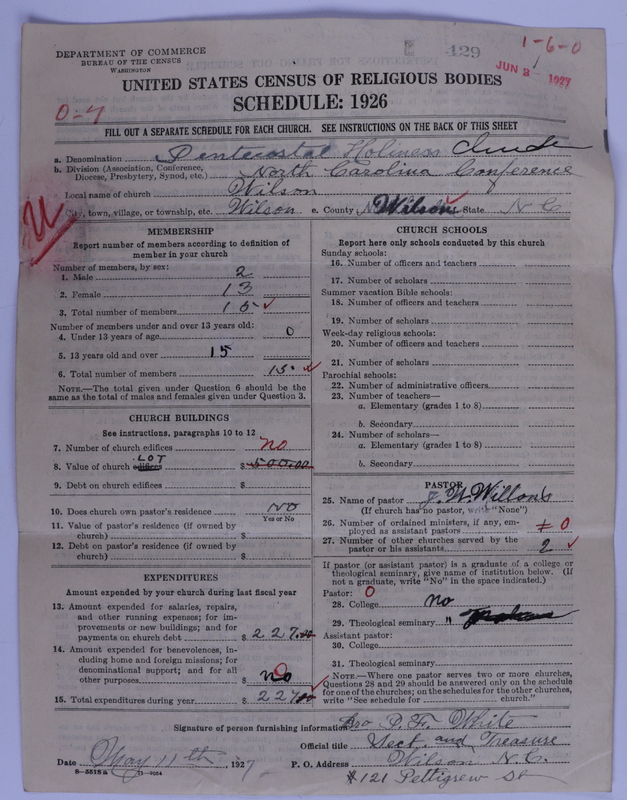 DEPARTMENT OF COMMERCE
BUREAU OF THE CENSUS
WASHINGTON
429
1-6-0
JUN 2 1927
UNITED STATES CENSUS OF RELIGIOUS BODIES
SCHEDULE: 1926
0-4
FILL OUT A SEPARATE SCHEDULE FOR EACH CHURCH. SEE INSTRUCTIONS ON THE BACK OF THIS SHEET
a. Denomination Pentecostal Holiness
b. Division (Association, Conference, Diocese, Presbytery, Synod, etc.) North Carolina Conference
c. Local name of church Wilson
d. City, town, village, or township, etc. Wilson e. County Wilson State N C
MEMBERSHIP
Report number of members according to definition of
member in your church
Number of members, by sex:
1. Male 2
2. Female 13
3. Total number of members 15
Number of members under and over 13 years old:
4. Under 13 years of age 0
5. 13 years old and over 15
6. Total number of members 15
NOTE.—The total given under Question 6 should be the
same as the total of males and females given under Question 3.
CHURCH BUILDINGS
See instructions, paragraphs 10 to 12
7. Number of church edifices no
8. Value of church edifices LOT $ 500.00
9. Debt on church edifices $
10. Does church own pastor's residence NO
Yes or No
11. Value of pastor's residence (if owned by
church) $
12. Debt on pastor's residence (if owned by
church) $
EXPENDITURES
Amount expended by your church during last fiscal year
13. Amount expended for salaries, repairs,
and other running expenses; for im-
provements or new buildings; and for
payments on church debt $ 227.00
14. Amount expended for benevolences, in-
cluding home and foreign missions; for
denominational support; and for all
other purposes $ no 0
15. Total expenditures during year $ 227.00
CHURCH SCHOOLS
Report here only schools conducted by this church
Sunday schools:
16. Number of officers and teachers
17. Number of scholars
Summer vacation Bible schools:
18. Number of officers and teachers
19. Number of scholars
Week-day religious schools:
20. Number of officers and teachers
21. Number of scholars
Parochial schools:
22. Number of administrative officers
23. Number of teachers—
a. Elementary (grades 1 to 8)
b. Secondary
24. Number of scholars—
a. Elementary (grades 1 to 8)
b. Secondary
PASTOR
25. Name of pastor
(If church has no pastor, write "None")
26. Number of ordained ministers, if any, em-
ployed as assistant pastors 0
27. Number of other churches served by the
pastor or his assistants 2
If pastor (or assistant pastor) is a graduate of a college or
theological seminary, give name of institution below. (If
not a graduate, write "No" in the space indicated.)
Pastor: 0
28. College no
29. Theological seminary "
Assistant pastor:
30. College
31. Theological seminary
NOTE.—Where one pastor serves two or more churches,
Questions 28 and 29 should be answered only on the schedule
for one of the churches; on the schedules for the other churches,
write "See schedule for church."
Signature of person furnishing information P. F. White
Official title Sect. and Treasure
Date May 11th, 1927 P. O. Address Wilson N.C.
8—5518 a 11—9064
#121 Pettigrew St